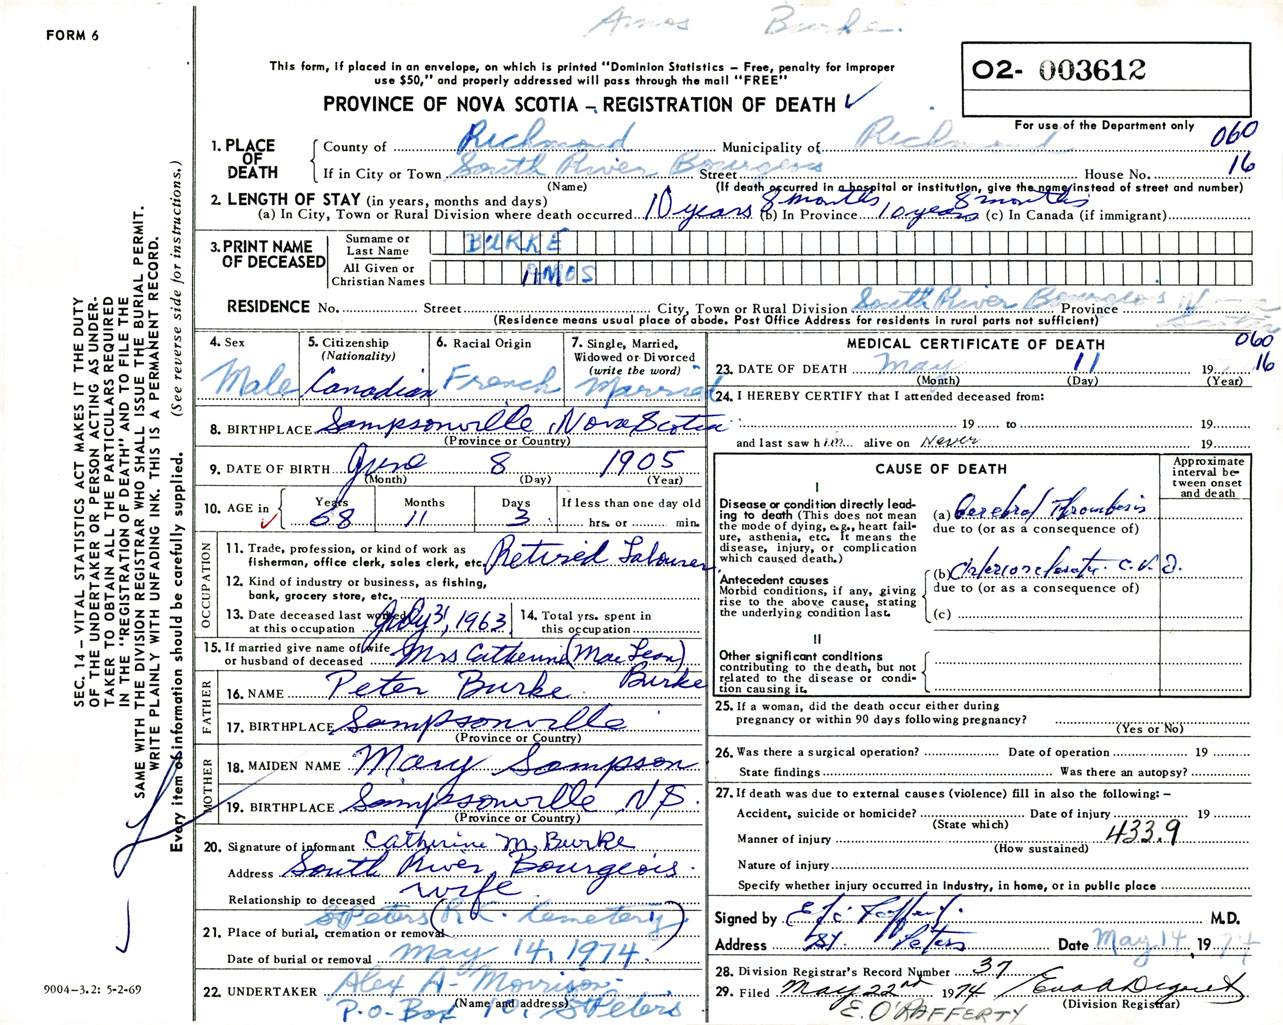 Amos Burke.
FORM 6
This form, if placed in an envelope, on which is printed "Dominion Statistics – Free, penalty for improper
use $50," and properly addressed will pass through the mail "FREE"
PROVINCE OF NOVA SCOTIA – REGISTRATION OF DEATH ✓
02- 003612
For use of the Department only
060
16
1. PLACE OF DEATH
County of Richmond Municipality of Richmond
If in City or Town South River Bourgeois Street House No.
(Name) (If death occurred in a hospital or institution, give the name instead of street and number)
2. LENGTH OF STAY (in years, months and days)
(a) In City, Town or Rural Division where death occurred 10 years 8 months (b) In Province 10 years 8 months (c) In Canada (if immigrant)
3. PRINT NAME OF DECEASED
Surname or Last Name BURKE
All Given or Christian Names AMOS
RESIDENCE No. Street City, Town or Rural Division South River Bourgeois Province Nova Scotia
(Residence means usual place of abode. Post Office Address for residents in rural parts not sufficient)
4. Sex Male
5. Citizenship (Nationality) Canadian
6. Racial Origin French
7. Single, Married, Widowed or Divorced (write the word) Married
8. BIRTHPLACE Sampsonville, Nova Scotia
(Province or Country)
9. DATE OF BIRTH June 8 1905
(Month) (Day) (Year)
10. AGE in ✓ Years 68 Months 11 Days 3 If less than one day old hrs. or min.
OCCUPATION
11. Trade, profession, or kind of work as
fisherman, office clerk, sales clerk, etc. Retired Labourer
12. Kind of industry or business, as fishing,
bank, grocery store, etc.
13. Date deceased last worked
at this occupation July 31, 1963
14. Total yrs. spent in
this occupation
15. If married give name of wife
or husband of deceased Mrs Catherine (MacLean) Burke
FATHER
16. NAME Peter Burke
17. BIRTHPLACE Sampsonville
(Province or Country)
MOTHER
18. MAIDEN NAME Mary Sampson
19. BIRTHPLACE Sampsonville N.S.
(Province or Country)
20. Signature of informant Catherine M. Burke
Address South River Bourgeois.
Relationship to deceased wife
21. Place of burial, cremation or removal St Peters (R.C. Cemetery)
Date of burial or removal May 14, 1974
22. UNDERTAKER Alex A. Morrison
(Name and address)
P.O. Box 10, St Peters
MEDICAL CERTIFICATE OF DEATH
060
16
23. DATE OF DEATH May 11 19
(Month) (Day) (Year)
24. I HEREBY CERTIFY that I attended deceased from:
19 to 19
and last saw him alive on Never 19
CAUSE OF DEATH
Approximate interval between onset and death
I
Disease or condition directly leading
to death (This does not mean
the mode of dying, e.g., heart failure,
asthenia, etc. It means the
disease, injury, or complication
which caused death.)
(a) Cerebral Thrombosis
due to (or as a consequence of)
Antecedent causes
Morbid conditions, if any, giving
rise to the above cause, stating
the underlying condition last.
(b) Arteriosclerotic C.V.D.
due to (or as a consequence of)
(c)
II
Other significant conditions
contributing to the death, but not
related to the disease or condition
causing it.
25. If a woman, did the death occur either during
pregnancy or within 90 days following pregnancy?
(Yes or No)
26. Was there a surgical operation? Date of operation 19
State findings Was there an autopsy?
27. If death was due to external causes (violence) fill in also the following: –
Accident, suicide or homicide? Date of injury 19
(State which)
433.9
Manner of injury
(How sustained)
Nature of injury
Specify whether injury occurred in Industry, in home, or in public place
Signed by M.D.
Address St. Peters Date May 14, 1974
28. Division Registrar's Record Number 37
29. Filed May 22nd 1974
(Division Registrar)
E. O'RAFFERTY
SEC. 14 – VITAL STATISTICS ACT MAKES IT THE DUTY
OF THE UNDERTAKER OR PERSON ACTING AS UNDERTAKER
TO OBTAIN ALL THE PARTICULARS REQUIRED
IN THE "REGISTRATION OF DEATH" AND TO FILE THE
SAME WITH THE DIVISION REGISTRAR WHO SHALL ISSUE THE BURIAL PERMIT.
WRITE PLAINLY WITH UNFADING INK. THIS IS A PERMANENT RECORD.
Every item of information should be carefully supplied. (See reverse side for instructions.)
9004–3.2: 5-2-69